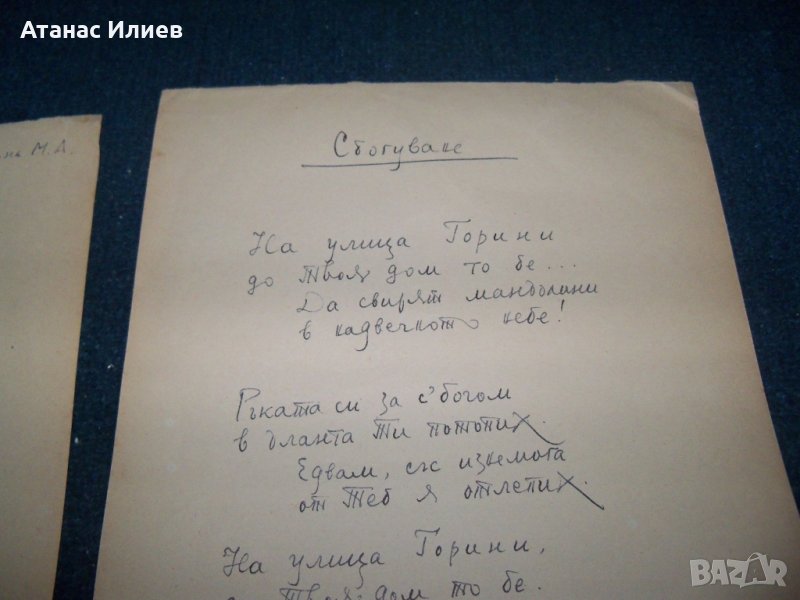 Атанас Илиев
на М. Д.
Сбогуване
На улица Горини
до твоя дом то бе...
Да свирят мандолини
в надвечното небе!
Ръката си за с'богом
в дланта Ти потопих.
Едвам, със изнемога
от Теб я отлепих.
На улица Горини,
Твоя дом то бе.
BAZAR